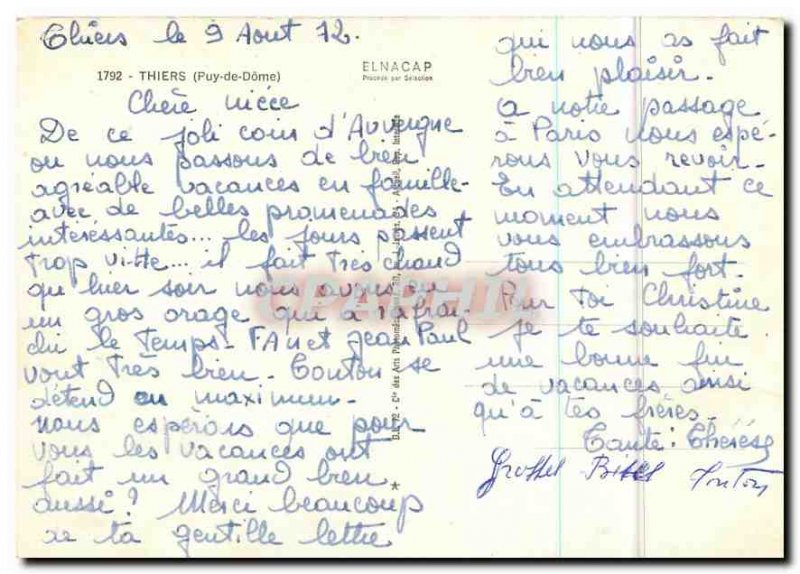 Thiers le 9 Aout 72.
1792 - THIERS (Puy-de-Dôme)
ELNACAP
Procédé par Sélection
Chère nièce
De ce joli coin d'Auvergne
ou nous passons de bien
agréable vacances en famille-
avec de belles promenades
intéressantes... les jours passent
trop vitte... il fait très chaud
qu hier soir nous avons eu
un gros orage qui à rafrai-
chi le temps- et Jean Paul
vont très bien- Tonton se
détend au maximum-
nous espèrons que pour
vous les vacances ont
fait un grand bien
aussi? Merci beaucoup
de ta gentille lettre
qui nous as fait
bien plaisir-
a notre passage
à Paris nous espé-
rons vous revoir-
En attendant ce
moment nous
vous embrassons
tous bien fort-
Pour toi Christine
je te souhaite
une bonne fin
de vacances ainsi
qu'à tes frères-
Tante: Thérèse
Tonton